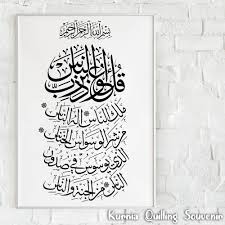 بسم الله الرحمن الرحيم
قل أعوذ برب الناس
ملك الناس إله الناس
من شر الوسواس الخناس
الذي يوسوس في صدور
الناس من الجنة والناس
Kurnia Quilling Souvenir